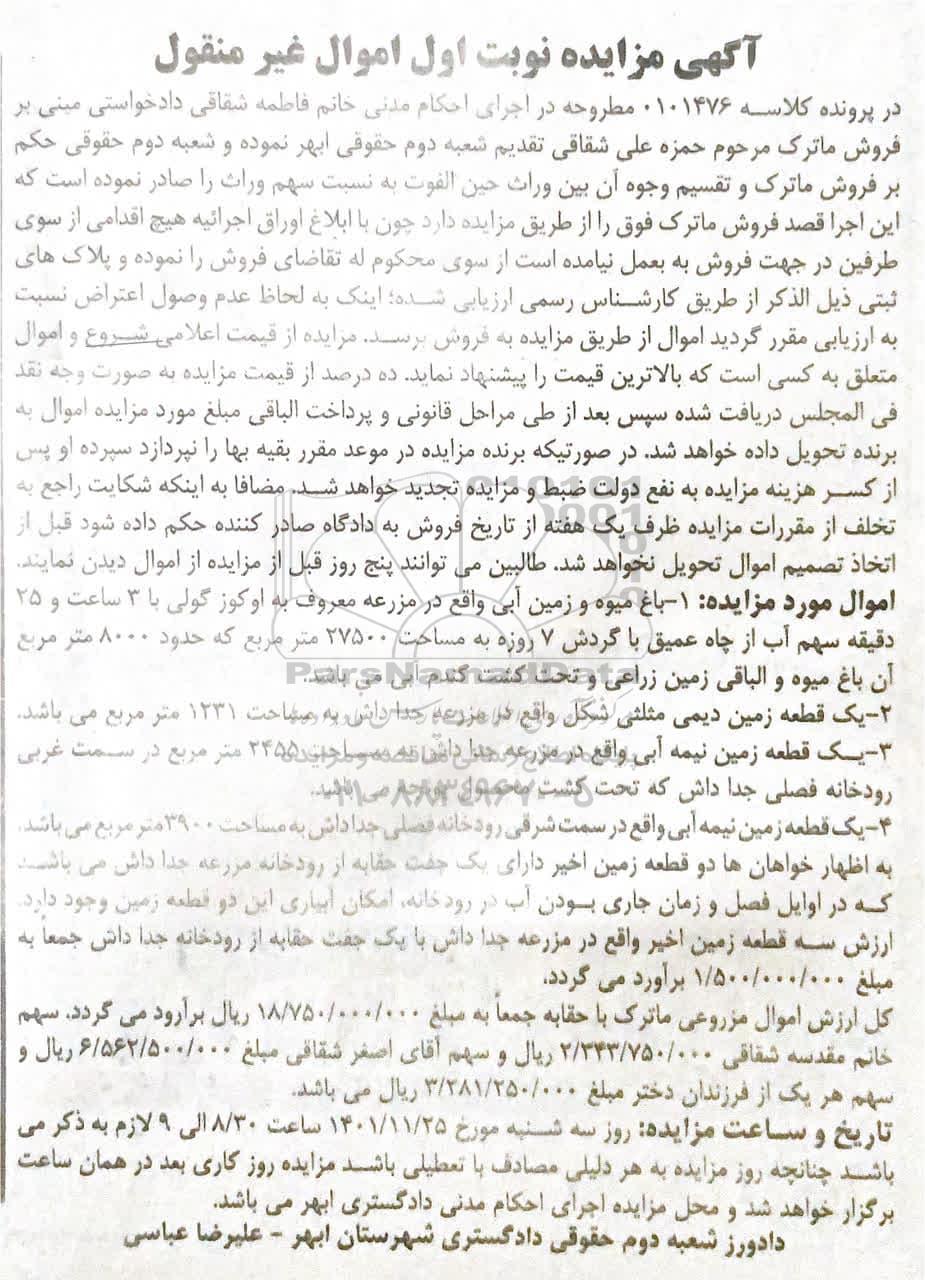 آگهی مزایده نوبت اول اموال غیر منقول
در پرونده کلاسه ۰۱۰۱۴۷۶ مطروحه در اجرای احکام مدنی خانم فاطمه شقاقی دادخواستی مبنی بر
فروش ماترک مرحوم حمزه علی شقاقی تقدیم شعبه دوم حقوقی ابهر نموده و شعبه دوم حقوقی حکم
بر فروش ماترک و تقسیم وجوه آن بین وراث حین الفوت به نسبت سهم وراث را صادر نموده است که
این اجرا قصد فروش ماترک فوق را از طریق مزایده دارد چون با ابلاغ اوراق اجرائیه هیچ اقدامی از سوی
طرفین در جهت فروش به بعمل نیامده است از سوی محکوم له تقاضای فروش را نموده و پلاک های
ثبتی ذیل الذکر از طریق کارشناس رسمی ارزیابی شده؛ اینک به لحاظ عدم وصول اعتراض نسبت
به ارزیابی مقرر گردید اموال از طریق مزایده به فروش برسد. مزایده از قیمت اعلامی شروع و اموال
متعلق به کسی است که بالاترین قیمت را پیشنهاد نماید. ده درصد از قیمت مزایده به صورت وجه نقد
فی المجلس دریافت شده سپس بعد از طی مراحل قانونی و پرداخت الباقی مبلغ مورد مزایده اموال به
برنده تحویل داده خواهد شد. در صورتیکه برنده مزایده در موعد مقرر بقیه بها را نپردازد سپرده او پس
از کسر هزینه مزایده به نفع دولت ضبط و مزایده تجدید خواهد شد. مضافا به اینکه شکایت راجع به
تخلف از مقررات مزایده ظرف یک هفته از تاریخ فروش به دادگاه صادر کننده حکم داده شود قبل از
اتخاذ تصمیم اموال تحویل نخواهد شد. طالبین می توانند پنج روز قبل از مزایده از اموال دیدن نمایند.
اموال مورد مزایده: ۱-باغ میوه و زمین آبی واقع در مزرعه معروف به اوکوز گولی با ۳ ساعت و ۲۵
دقیقه سهم آب از چاه عمیق با گردش ۷ روزه به مساحت ۲۷۵۰۰ متر مربع که حدود ۸۰۰۰ متر مربع
آن باغ میوه و الباقی زمین زراعی و تحت کشت گندم آبی می باشد.
ParsNamadData
۲-یک قطعه زمین دیمی مثلثی شکل واقع در مزرعه جدا داش به مساحت ۱۲۳۱ متر مربع می باشد.
۳-یک قطعه زمین نیمه آبی واقع در مزرعه جدا داش به مساحت ۲۴۵۵ متر مربع در سمت غربی
رودخانه فصلی جدا داش که تحت کشت محصول یونجه می باشد.
۰۲۱-۸۸۳۴۹۶۷۰-۵
۴-یک قطعه زمین نیمه آبی واقع در سمت شرقی رودخانه فصلی جدا داش به مساحت ۳۹۰۰ متر مربع می باشد.
به اظهار خواهان ها دو قطعه زمین اخیر دارای یک جفت حقابه از رودخانه مزرعه جدا داش می باشد
که در اوایل فصل و زمان جاری بودن آب در رودخانه، امکان آبیاری این دو قطعه زمین وجود دارد.
ارزش سه قطعه زمین اخیر واقع در مزرعه جدا داش با یک جفت حقابه از رودخانه جدا داش جمعاً به
مبلغ ۱/۵۰۰/۰۰۰/۰۰۰ برآورد می گردد.
کل ارزش اموال مزروعی ماترک با حقابه جمعاً به مبلغ ۱۸/۷۵۰/۰۰۰/۰۰۰ ریال برآرود می گردد. سهم
خانم مقدسه شقاقی ۲/۳۴۳/۷۵۰/۰۰۰ ریال و سهم آقای اصغر شقاقی مبلغ ۶/۵۶۲/۵۰۰/۰۰۰ ریال و
سهم هر یک از فرزندان دختر مبلغ ۳/۲۸۱/۲۵۰/۰۰۰ ریال می باشد.
تاریخ و ساعت مزایده: روز سه شنبه مورخ ۱۴۰۱/۱۱/۲۵ ساعت ۸/۳۰ الی ۹ لازم به ذکر می
باشد چنانچه روز مزایده به هر دلیلی مصادف با تعطیلی باشد مزایده روز کاری بعد در همان ساعت
برگزار خواهد شد و محل مزایده اجرای احکام مدنی دادگستری ابهر می باشد.
دادورز شعبه دوم حقوقی دادگستری شهرستان ابهر - علیرضا عباسی